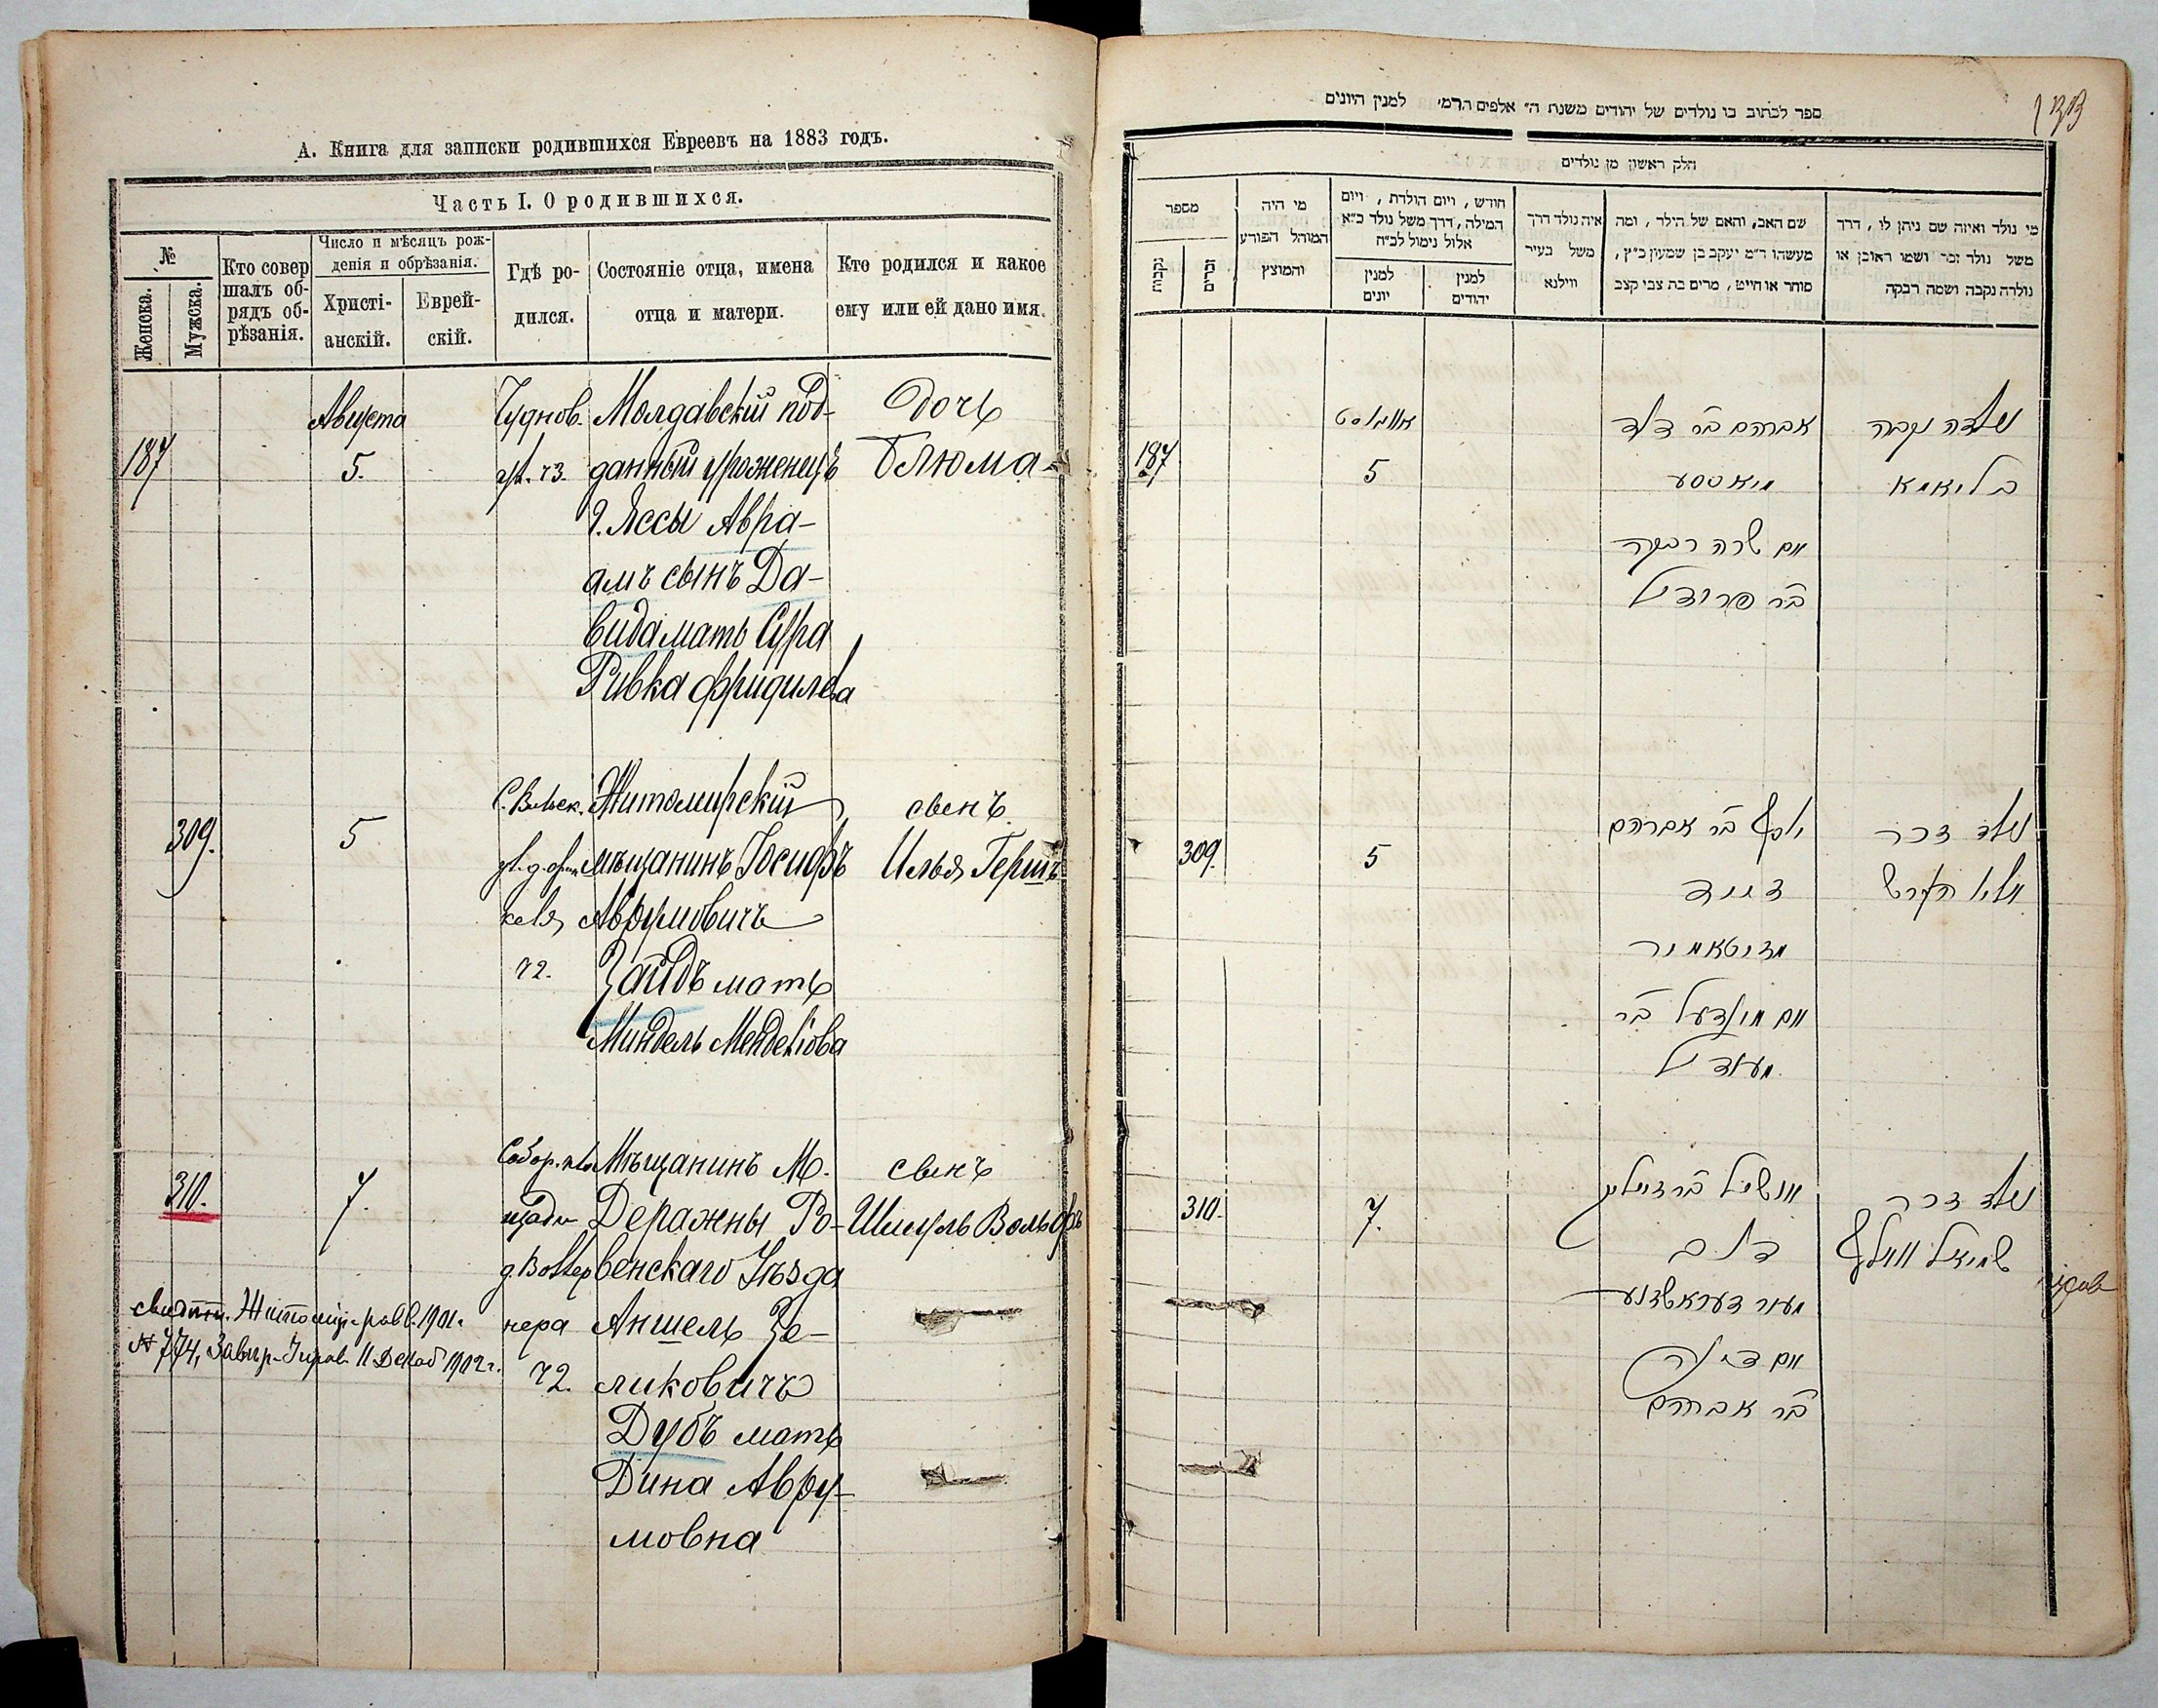 А. Книга для записки родившихся Евреевъ на 1883 годъ.
Часть I. О родившихся.
№
Женска.
Мужска.
Кто совер
шалъ об-
рядъ об-
рѣзанія.
Число и мѣсяцъ рож-
денія и обрѣзанія.
Христі-
анскій.
Еврей-
скій.
Гдѣ ро-
дился.
Состояніе отца, имена
отца и матери.
Кто родился и какое
ему или ей дано имя.
187
Августа
5.
Чуднов.
ул. ч3.
Молдавскій под-
данный уроженецъ
г. Яссы Авра-
амъ сынъ Да-
вида мать Сура
Ривка Фридилева
Дочь
Блюма
309.
5
ч2.
Житомирскій
мѣщанинъ Іосифъ
Аврумовичъ
Зайдъ мать
Миндель Менделіова
сынъ
Илья Гершъ
310.
7.
ч2.
Мѣщанинъ М.
Деражны Ро-
венскаго Уѣзда
Аншель Зе-
ликовичъ
Дубъ мать
Дина Авру-
мовна
сынъ
Шмуль Вольфъ
1901.
№ 774, 11 Декаб 1902 г.
ספר לכתוב בו נולדים של יהודים משנת ה״ אלפים הרמ״ למנין היונים
חלק ראשון מן נולדים
מספר
נקבות
זכרים
מי היה
המוהל הפורע
והמוצץ
חודש, ויום הולדת, ויום
המילה, דרך משל נולד כ״א
אלול נימול לכ״ח
למנין
יונים
למנין
יהודים
איה נולד דרך
משל בעיר
ווילנא
שם האב, והאם של הילד, ומה
מעשהו ד״מ יעקב בן שמעון כ״ץ,
סוחר או חייט, מרים בת צבי קצב
מי נולד ואיזה שם ניתן לו, דרך
משל נולד זכר ושמו ראובן או
נולדה נקבה ושמה רבקה
187
אווגוסט
5
אברהם בר דוד
מיאססע
אם שרה רבקה
בר פרידיל
נולדה נקבה
בליומא
309.
5
יוסף בר אברהם
זייד
מזיטאמיר
אם מינדעל בר
מענדיל
נולד זכר
אליו הירש
310.
7.
אנשיל בר זעליג
דוב
מעיר דעראזשנע
אם דינה
בר אברהם
נולד זכר
שמואל וואלף